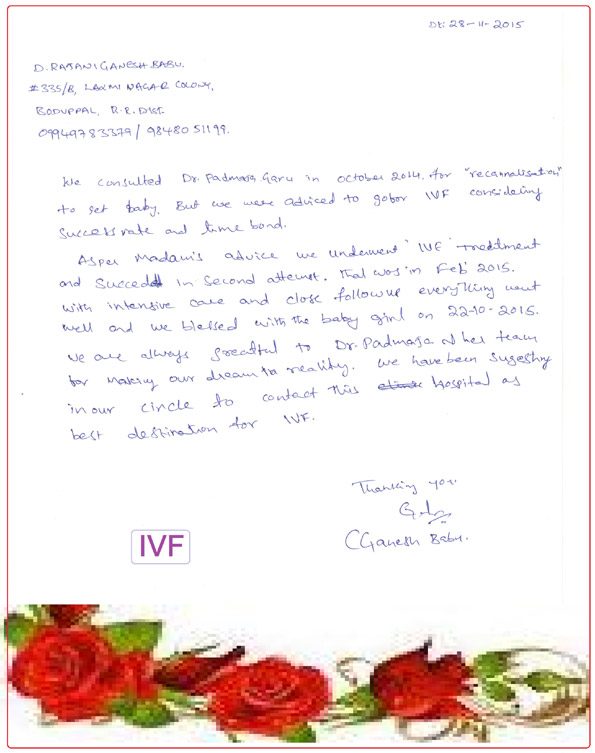 Dt: 28-11-2015
D. RAJANI GANESH BABU.
#335/B, LAXMI NAGAR COLONY,
BODUPPAL, R.R. DIST.
09949783379 / 98480 51199.
We consulted Dr. Padmaja Garu in october 2014. for "recannalisation"
to get baby. But we were adviced to gofor IVF considering
success rate and time bond.
As per Madam's advice we underwent 'IVF' Treatment
and Succeed in second attempt. That was in Feb' 2015.
with intensive care and close followup everything went
well and we blessed with the baby girl on 22-10-2015.
we are always greatful to Dr. Padmaja & her team
for making our dream to reality. we have been sugesting
in our circle to contact this clinic Hospital as
best destination for IVF.
Thanking you.
(Ganesh Babu.
IVF